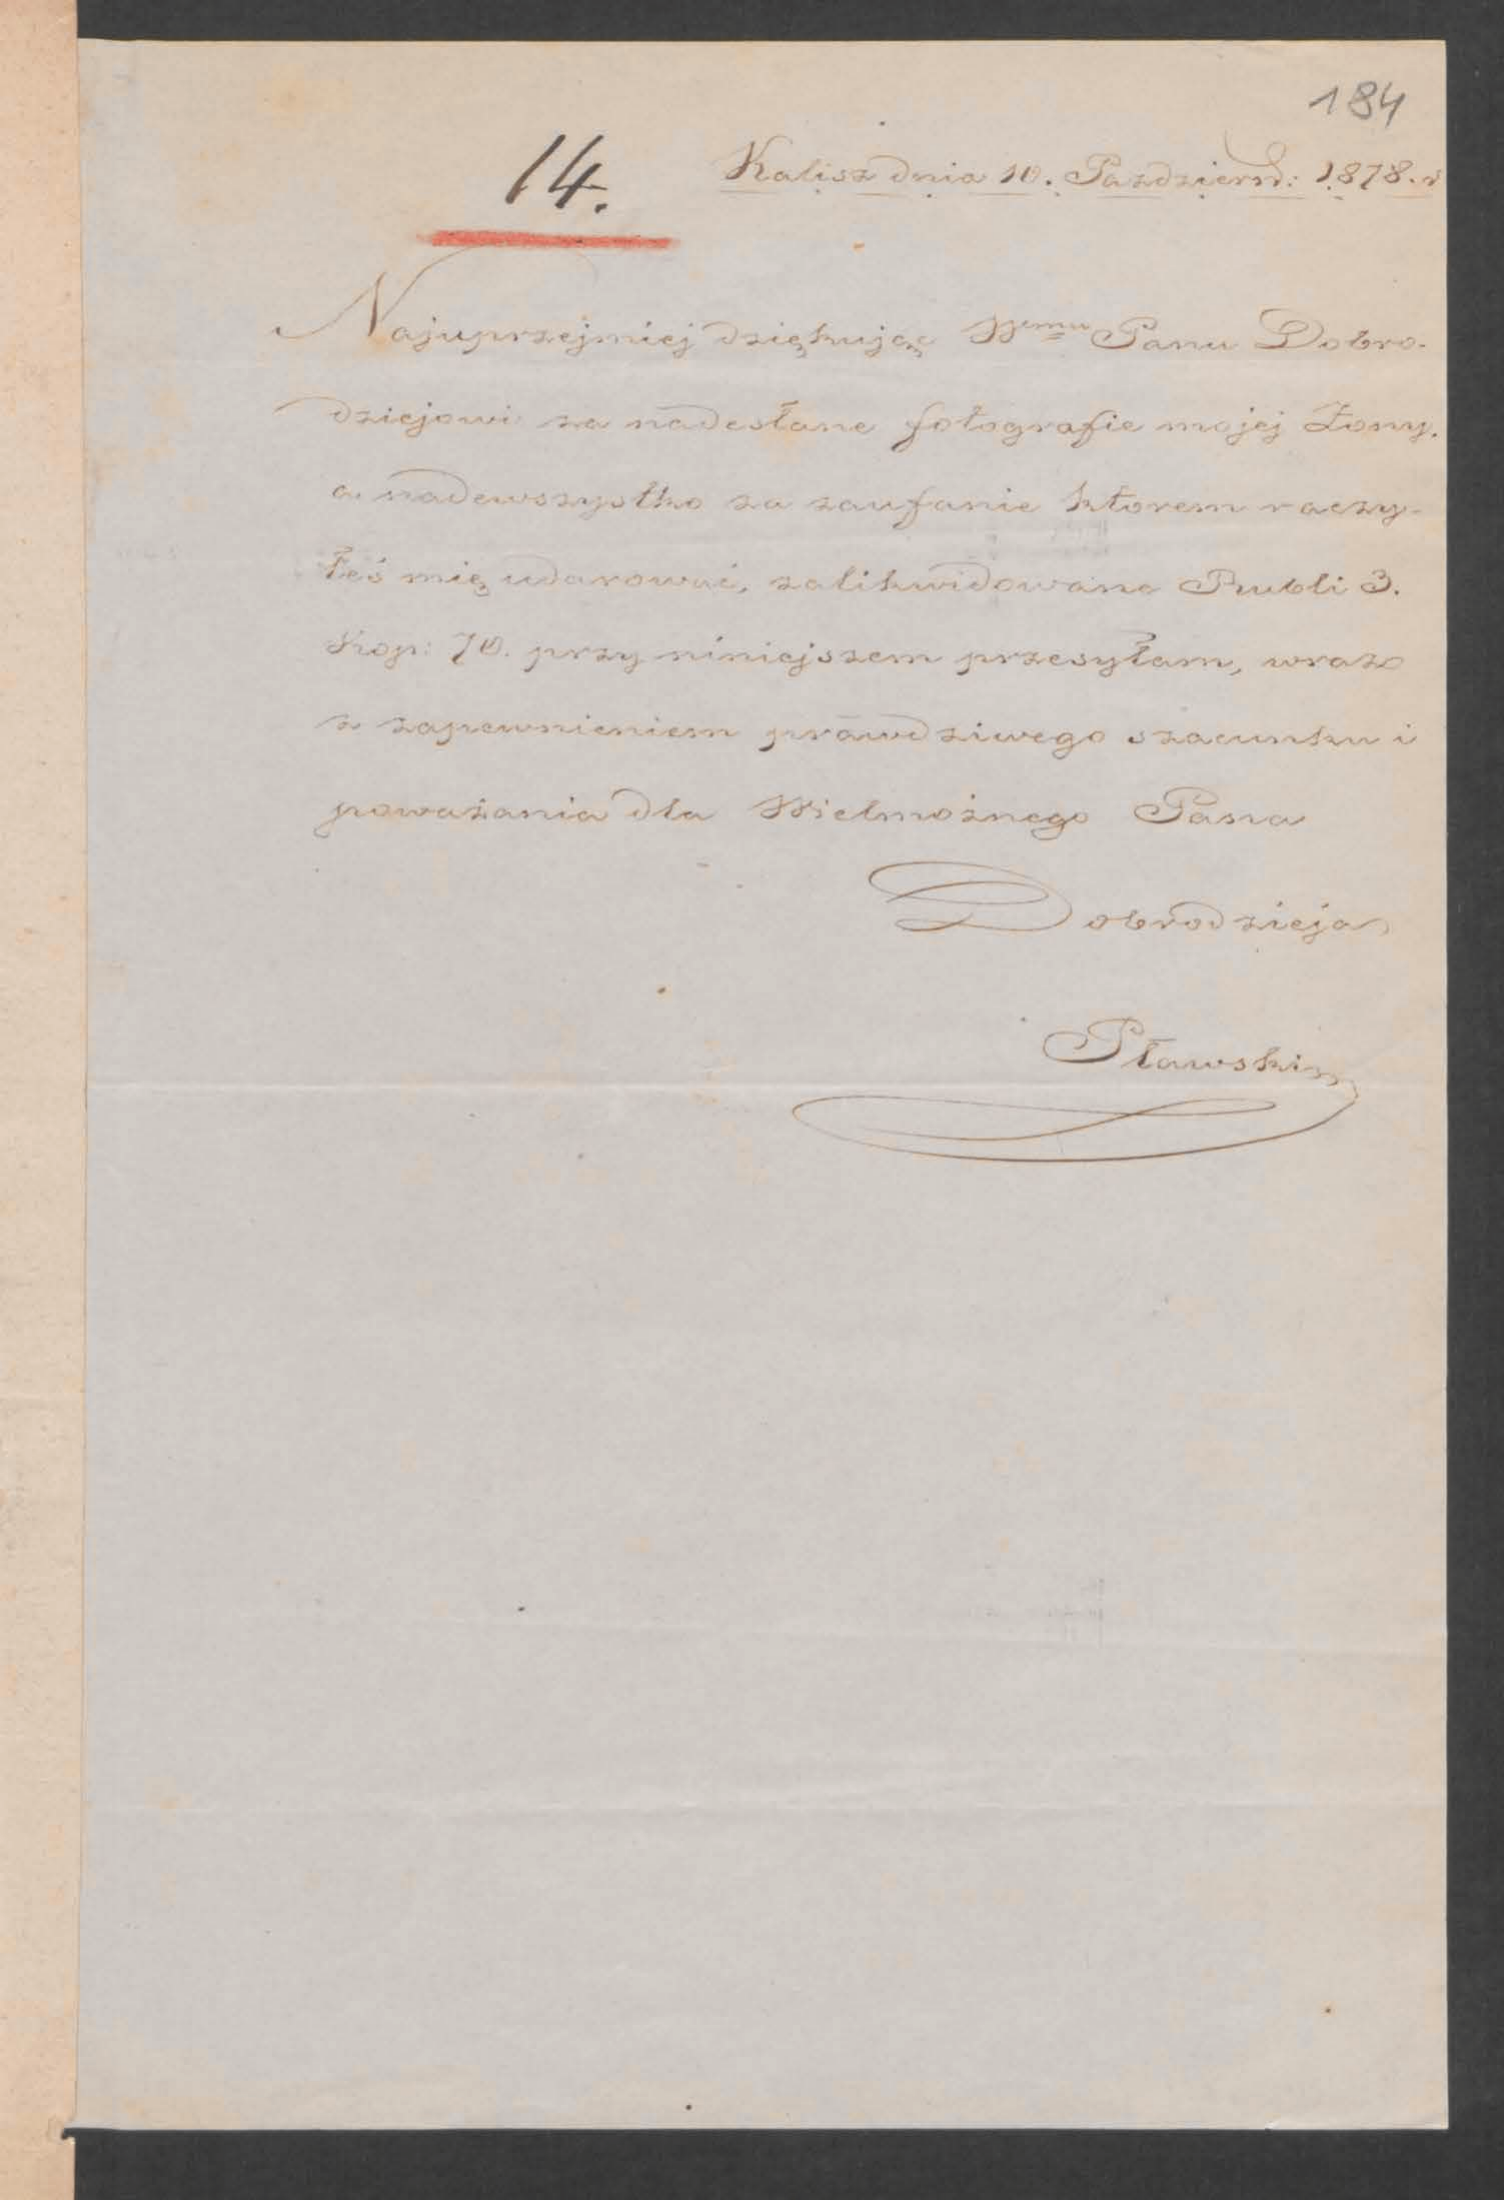 184
14.
Kalisz dnia 10. Pazdziern: 1878. r
Najuprzejmiej dziękując Wemu Panu Dobro-
dziejowi za nadesłane fotografie mojej Żony,
a nadewszystko za zaufanie ktorem raczy-
łeś mię udarować, zalikwidowane Rubli 3.
Kop: 70. przy niniejszem przesyłam, wraz
z zapewnieniem prawdziwego szacunku i
poważania dla Wielmożnego Pana
Dobrodzieja
Pławski